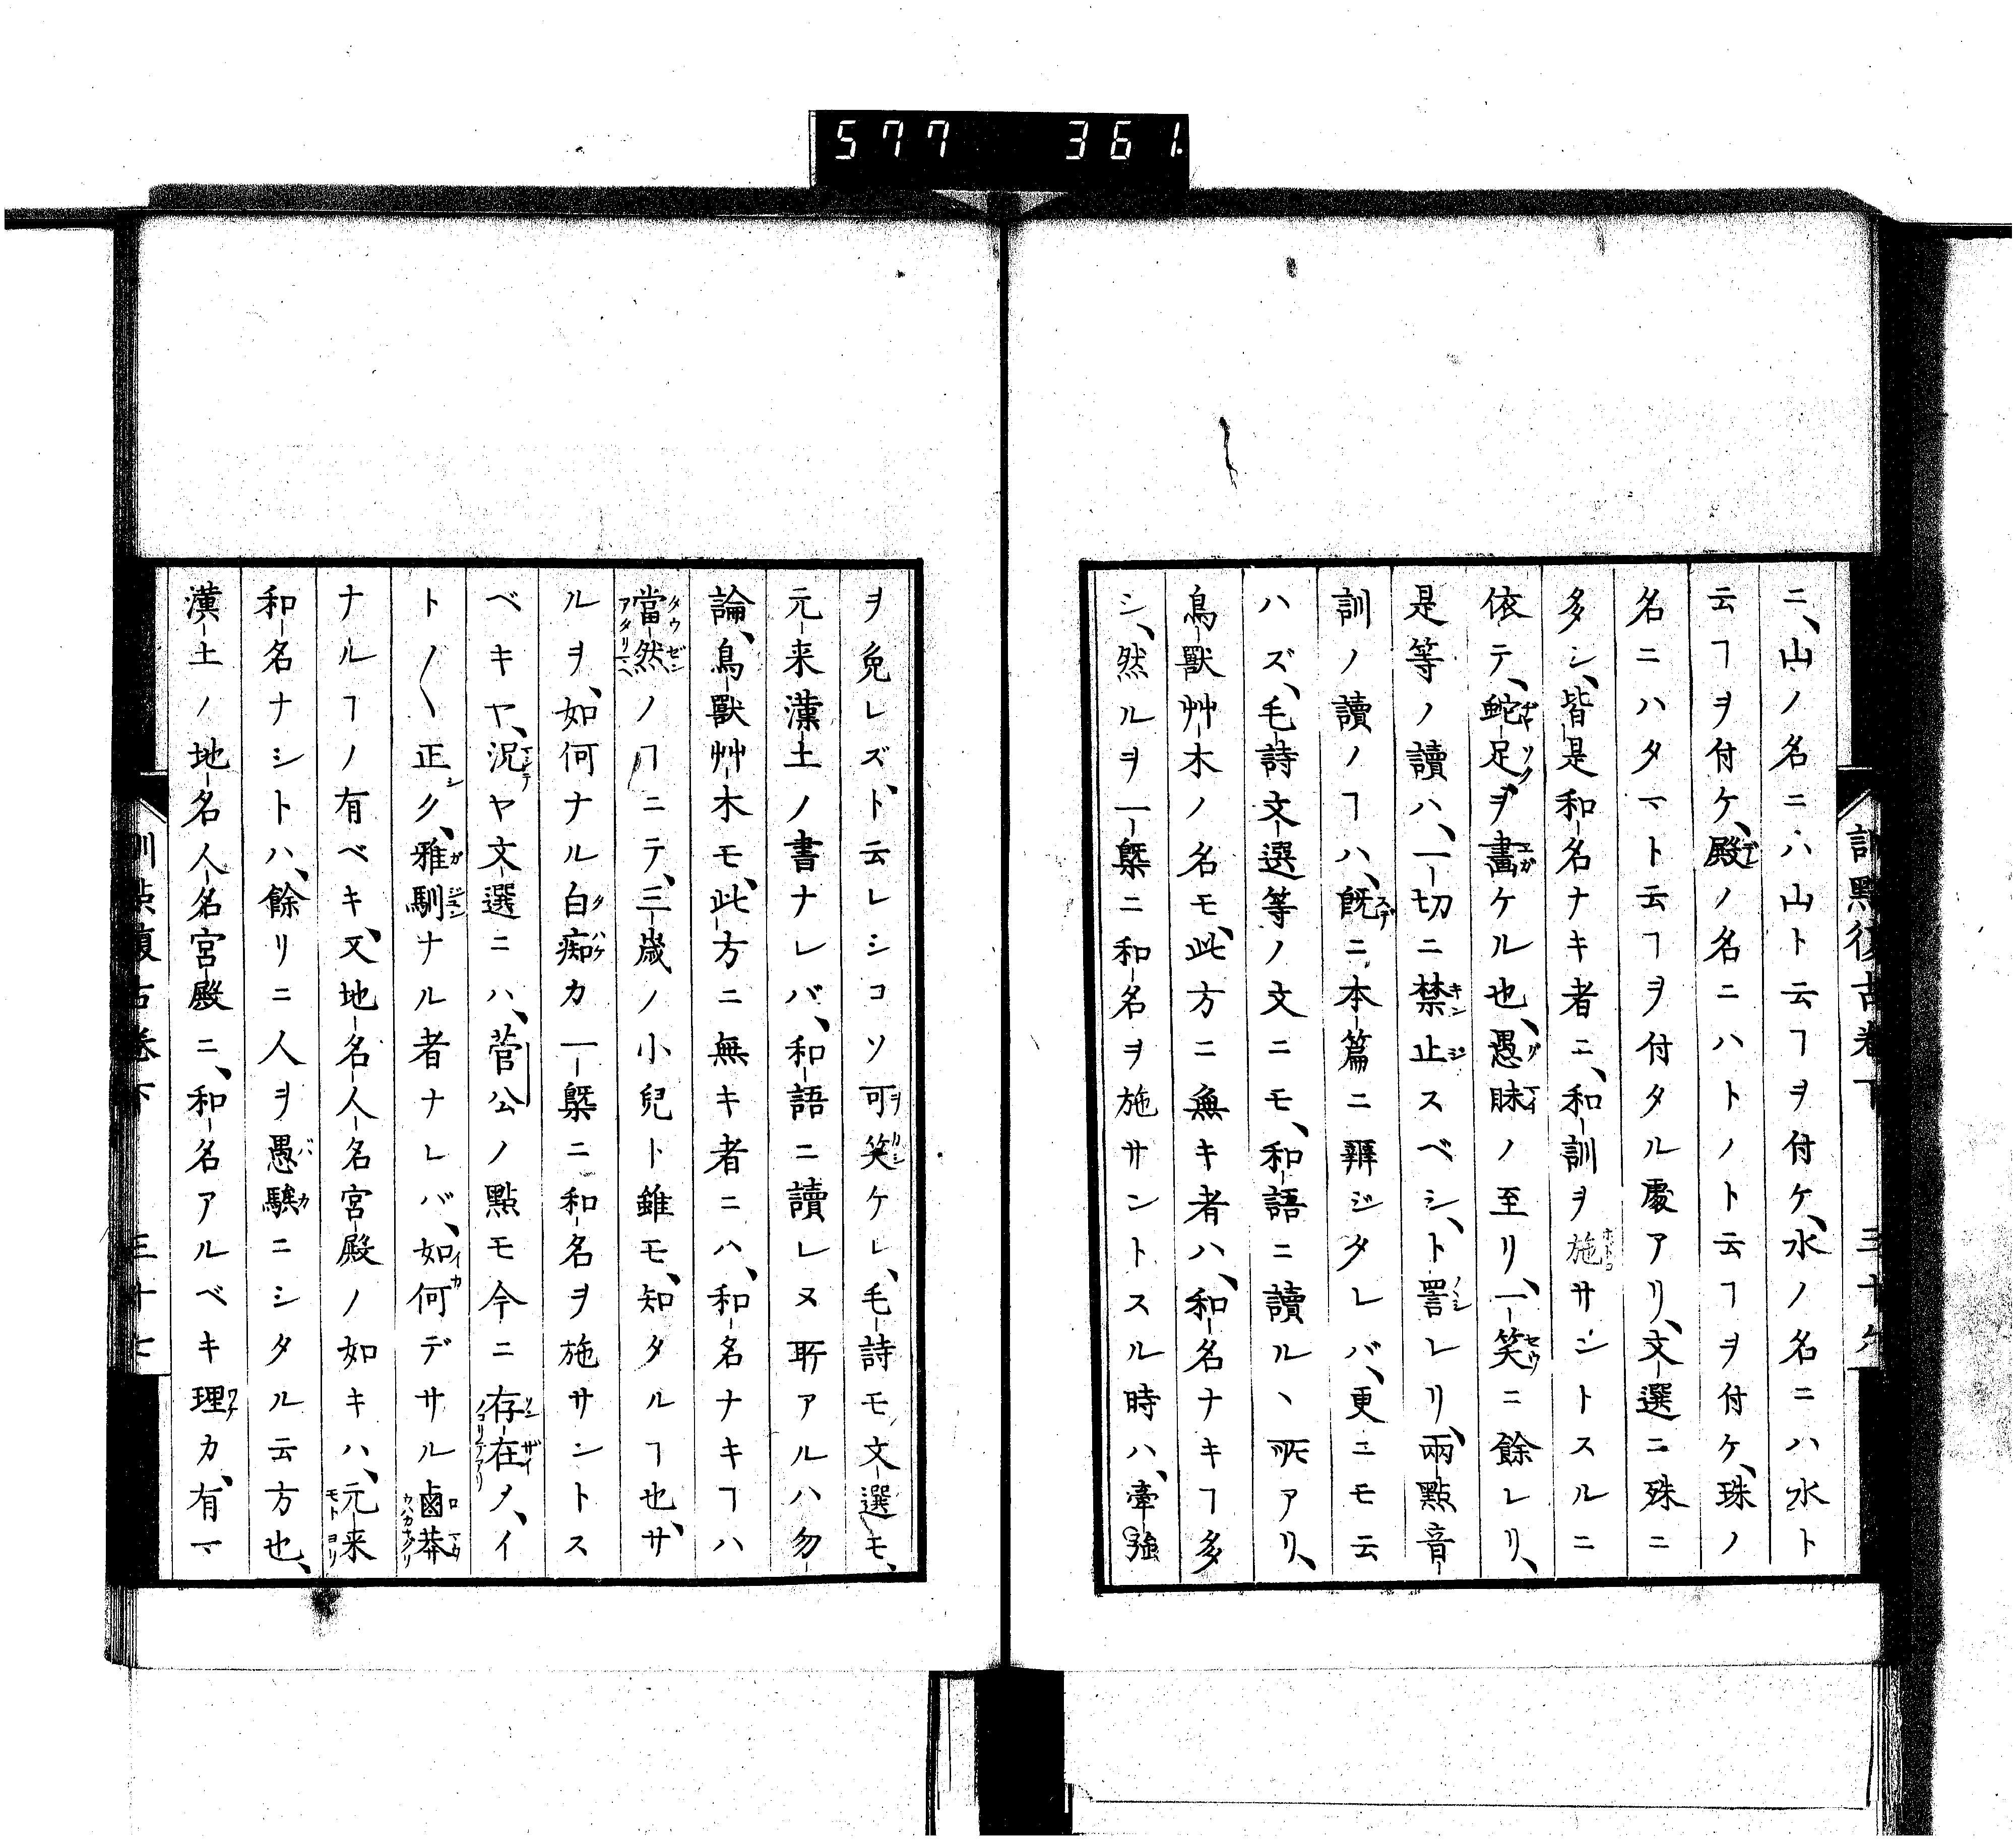 577 361
訓點復古卷下 三十六
ニ、山ノ名ニハ山ト云ヿヲ付ケ、水ノ名ニハ水ト
云ヿヲ付ケ、殿ノ名ニハトノト云ヿヲ付ケ、珠ノ
名ニハタマト云ヿヲ付タル處アリ、文選ニ殊ニ
多シ、皆是和名ナキ者ニ、和訓ヲ施サントスルニ
依テ、蛇足ヲ畫ケル也、愚昧ノ至リ、一笑ニ餘レリ、
是等ノ讀ハ、一切ニ禁止スベシ、ト詈レリ、兩點音
訓ノ讀ノヿハ、既ニ本篇ニ辨ジタレバ、更ニモ云
ハズ、毛詩文選等ノ文ニモ、和語ニ讀ルヽ所アリ、
鳥獸艸木ノ名モ、此方ニ無キ者ハ、和名ナキヿ多
シ、然ルヲ一槩ニ和名ヲ施サントスル時ハ、牽強
ヲ免レズ、ト云レシコソ可笑ケレ、毛詩モ文選モ、
元来漢土ノ書ナレバ、和語ニ讀レヌ所アルハ勿
論、鳥獸艸木モ、此方ニ無キ者ニハ、和名ナキヿハ
當然ノヿニテ、三歳ノ小兒ト雖モ、知タルヿ也、サ
ルヲ、如何ナル白痴カ一槩ニ和名ヲ施サントス
ベキヤ、況ヤ文選ニハ、菅公ノ點モ今ニ存在ノ、イ
ト〳〵正シク、雅馴ナル者ナレバ、如何デサル鹵莽
ナルヿノ有ベキ、又地名人名宮殿ノ如キハ、元来
和名ナシトハ、餘リニ人ヲ愚騃ニシタル云方也、
漢土ノ地名人名宮殿ニ、和名アルベキ理カ、有マ
訓點復古卷下 三十七